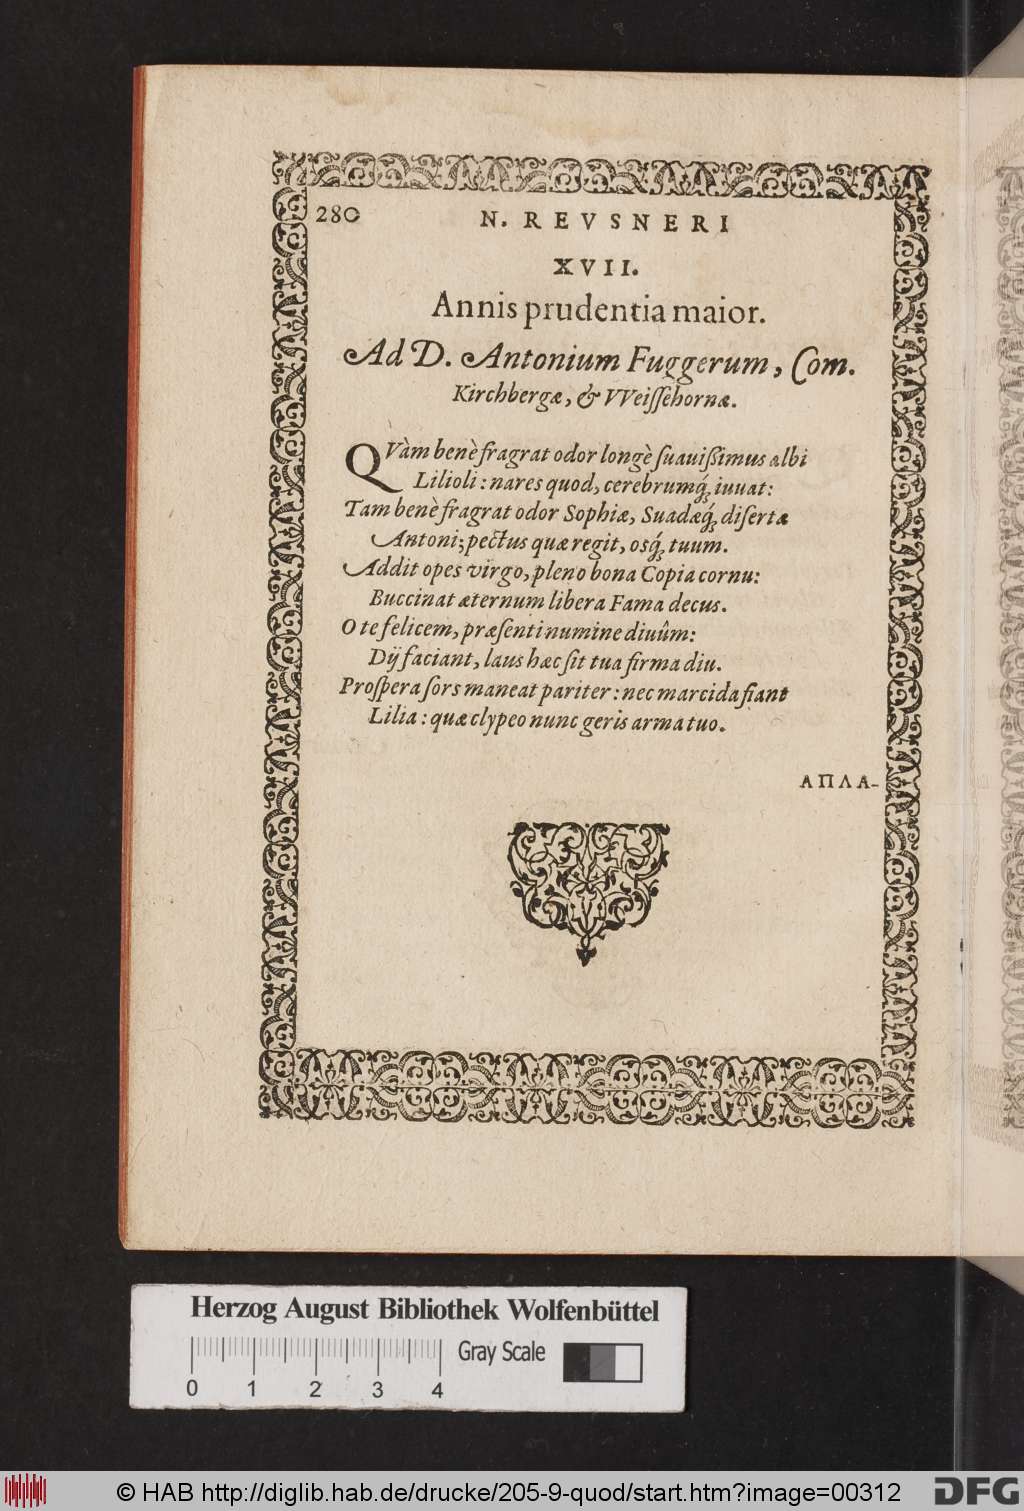 280
N. REVSNERI
XVII.
Annis prudentia maior.
Ad D. Antonium Fuggerum, Com.
Kirchbergæ, & VVeiſſehornæ.
QVàm benè fragrat odor longè ſuauißimus albi
Lilioli: nares quod, cerebrumq́; iuuat:
Tam benè fragrat odor Sophiæ, Suadæq́; diſertæ
Antoni; pectus quæ regit, osq́; tuum.
Addit opes virgo, pleno bona Copia cornu:
Buccinat æternum libera Fama decus.
O te felicem, præſenti numine diuûm:
Dij faciant, laus hæc ſit tua firma diu.
Proſpera ſors maneat pariter: nec marcida fiant
Lilia: quæ clypeo nunc geris arma tuo.
ΑΠΛΑ-
Herzog August Bibliothek Wolfenbüttel
Gray Scale
0 1 2 3 4
© HAB http://diglib.hab.de/drucke/205-9-quod/start.htm?image=00312
DFG